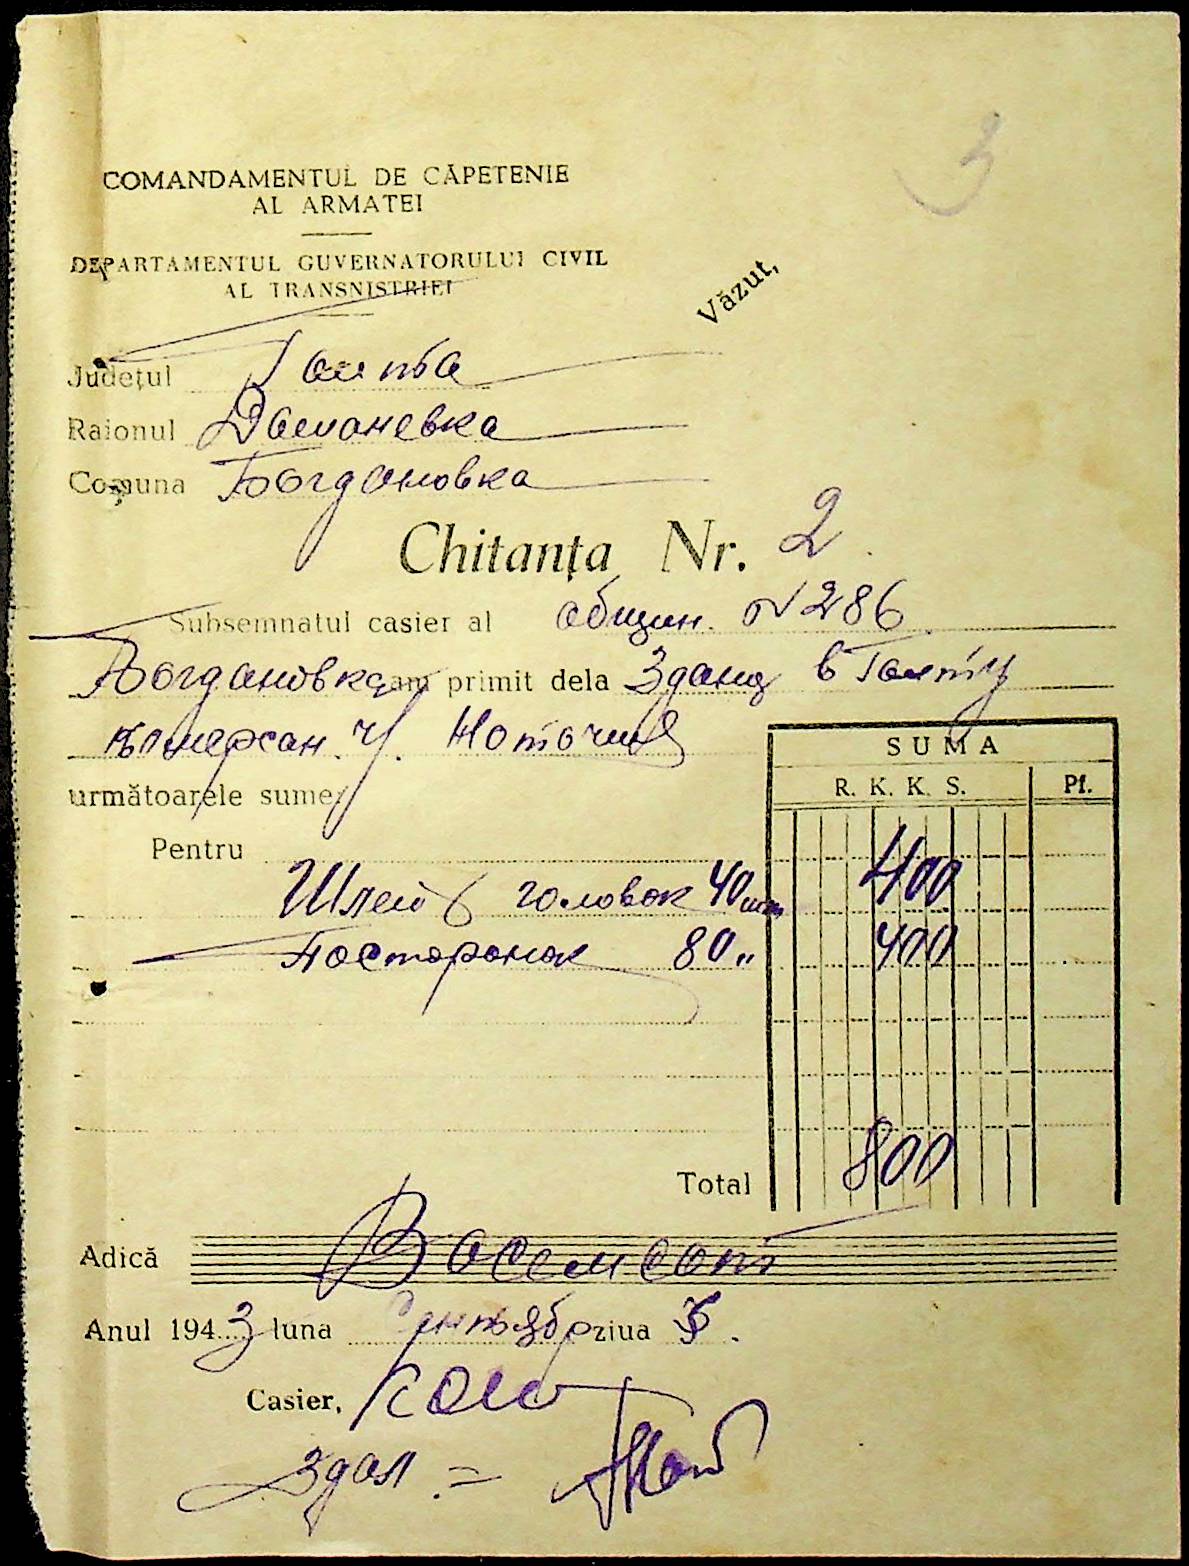 3
COMANDAMENTUL DE CĂPETENIE
AL ARMATEI
DEPARTAMENTUL GUVERNATORULUI CIVIL
AL TRANSNISTRIEI
Văzut,
Județul Голта
Raionul Доманевка
Comuna Богдановка
Chitanța Nr. 2
Subsemnatul casier al общин. N 286
Богдановка am primit dela Здани в Голту
următoarele sume
SUMA
R. K. K. S. Pf.
Pentru
Шлей голо́вок 40 шт 400
Посторонок 80 " 400
Total 800
Adică Восемсот
Anul 1943 luna Сентябр ziua 5.
Casier,
Здал =